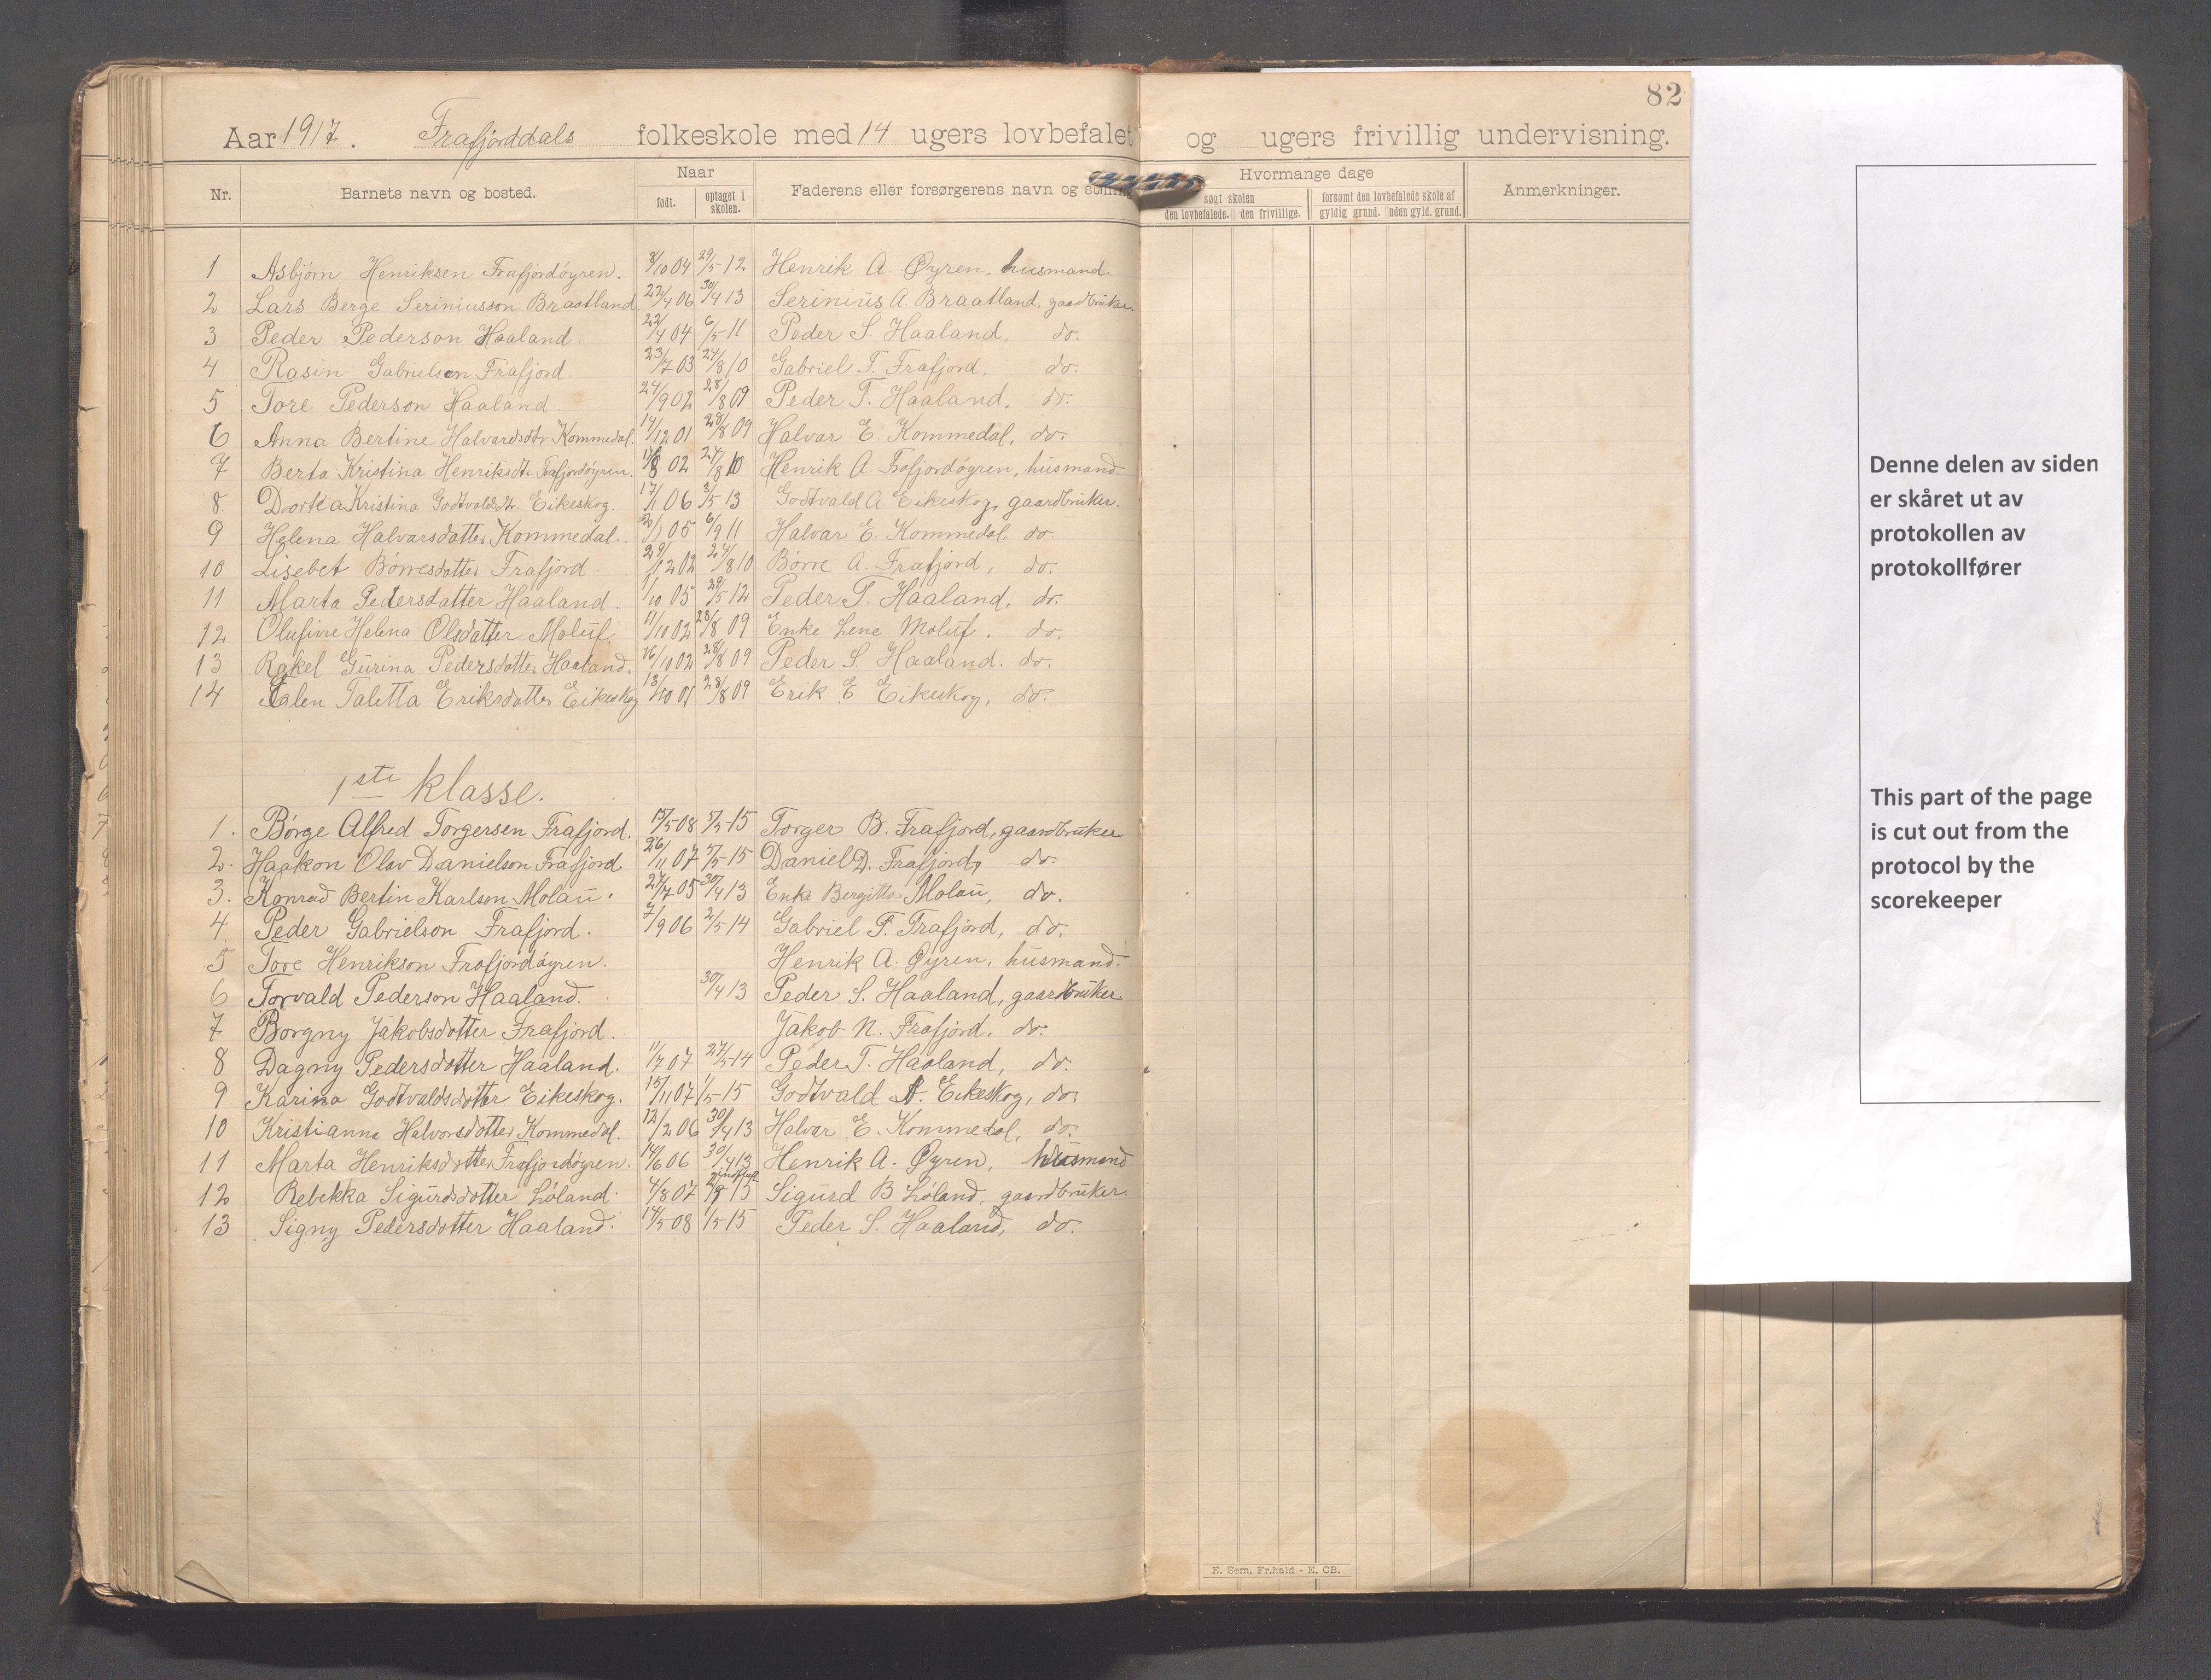 82
Aar 1917. Frafjorddals folkeskole med 14 ugers lovbefalet og ugers frivillig undervisning.
Nr. Barnets navn og bosted. Naar født. optaget i skolen. Faderens eller forsørgerens navn og Hvormange dage søgt skolen den lovbefalede. den frivillige. forsømt den lovbefalede skole af gyldig grund. uden gyld. grund. Anmerkninger.
1 Asbjørn Henriksen Frafjordöyren. 8/10 04 29/5 12 Henrik A. Øyren, husmand.
2 Lars Berge Seriniusson Braatland 22/4 06 30/4 13 Serinius A. Braatland, gaardbruker.
3 Peder Pederson Haaland. 22/4 04 6/5 11 Peder S. Haaland, do.
4 Rasin Gabrielson Frafjord. 23/7 03 24/8 10 Gabriel T. Frafjord, do.
5 Tore Pederson Haaland 24/9 02 28/8 09 Peder T. Haaland, do.
6 Anna Bertine Halvardsdtr Kommedal. 14/12 01 28/8 09 Halvar E. Kommedal, do.
7 Berta Kristina Henriksdtr. Frafjordöyren. 02 24/8 10 Henrik A. Frafjordöyren, husmand.
8. Dortea Kristina Godtvaldsdtr. Eikeskog. 17/1 06 3/5 13 Godtvald A. Eikeskog, gaardbruker.
9 Helena Halvarsdatter Kommedal. 2/1 05 6/9 11 Halvar E. Kommedal, do.
10 Lisebet Börresdatter Frafjord. 29/12 02 24/8 10 Börre A. Frafjord, do.
11 Marta Pedersdatter Haaland. 1/10 05 29/5 12 Peder T. Haaland, do.
12 Olufine Helena Olsdatter Moluf. 11/10 02 28/8 09 Enke Lene Moluf. do.
13 Rakel Gurina Pedersdatter Haaland. 16/10 02 28/8 09 Peder S. Haaland. do.
14 Talen Taletta Eriksdatter Eikeskog 13/10 01 28/8 09 Erik E Eikeskog, do.
1ste klasse.
1. Börge Alfred Torgersen Frafjord. 15/5 08 7/5 15 Torger B. Frafjord, gaardbruker
2. Haakon Olav Danielson Frafjord 26/11 07 7/5 15 Daniel D. Frafjord, do.
3. Konrad Bertin Karlson Molau. 27/7 05 30/4 13 Enke Bergitta Molau, do.
4 Peder Gabrielson Frafjord. 7/9 06 2/5 14 Gabriel T. Frafjord, do.
5 Tore Henrikson Frafjordöyren. Henrik A. Øyren, husmand.
6 Torvald Pederson Haaland. 30/4 13 Peder S. Haaland, gaardbruker
7 Borgny Jakobsdotter Frafjord. Jakob N. Frafjord, do.
8 Dagny Pedersdotter Haaland. 11/7 07 27/5 14 Peder T. Haaland, do.
9 Karina Godtvaldsdotter Eikeskog. 15/11 07 1/5 15 Godtvald A. Eikeskog, do.
10 Kristianna Halvorsdotter Kommedal. 12/2 06 30/4 13 Halvar E. Kommedal, do.
11 Marta Henriksdotter Frafjordöyren. 14/6 06 30/4 13 Henrik A. Øyren, husmand
12 Rebekka Sigurdsdotter Löland. 4/8 07 15 Sigurd B Löland, gaardbruker.
13 Signy Pedersdotter Haaland. 14/5 08 1/5 15 Peder S. Haaland, do.
E. Sem, Fr.hald - E. CB.
Denne delen av siden
er skåret ut av
protokollen av
protokollfører
This part of the page
is cut out from the
protocol by the
scorekeeper